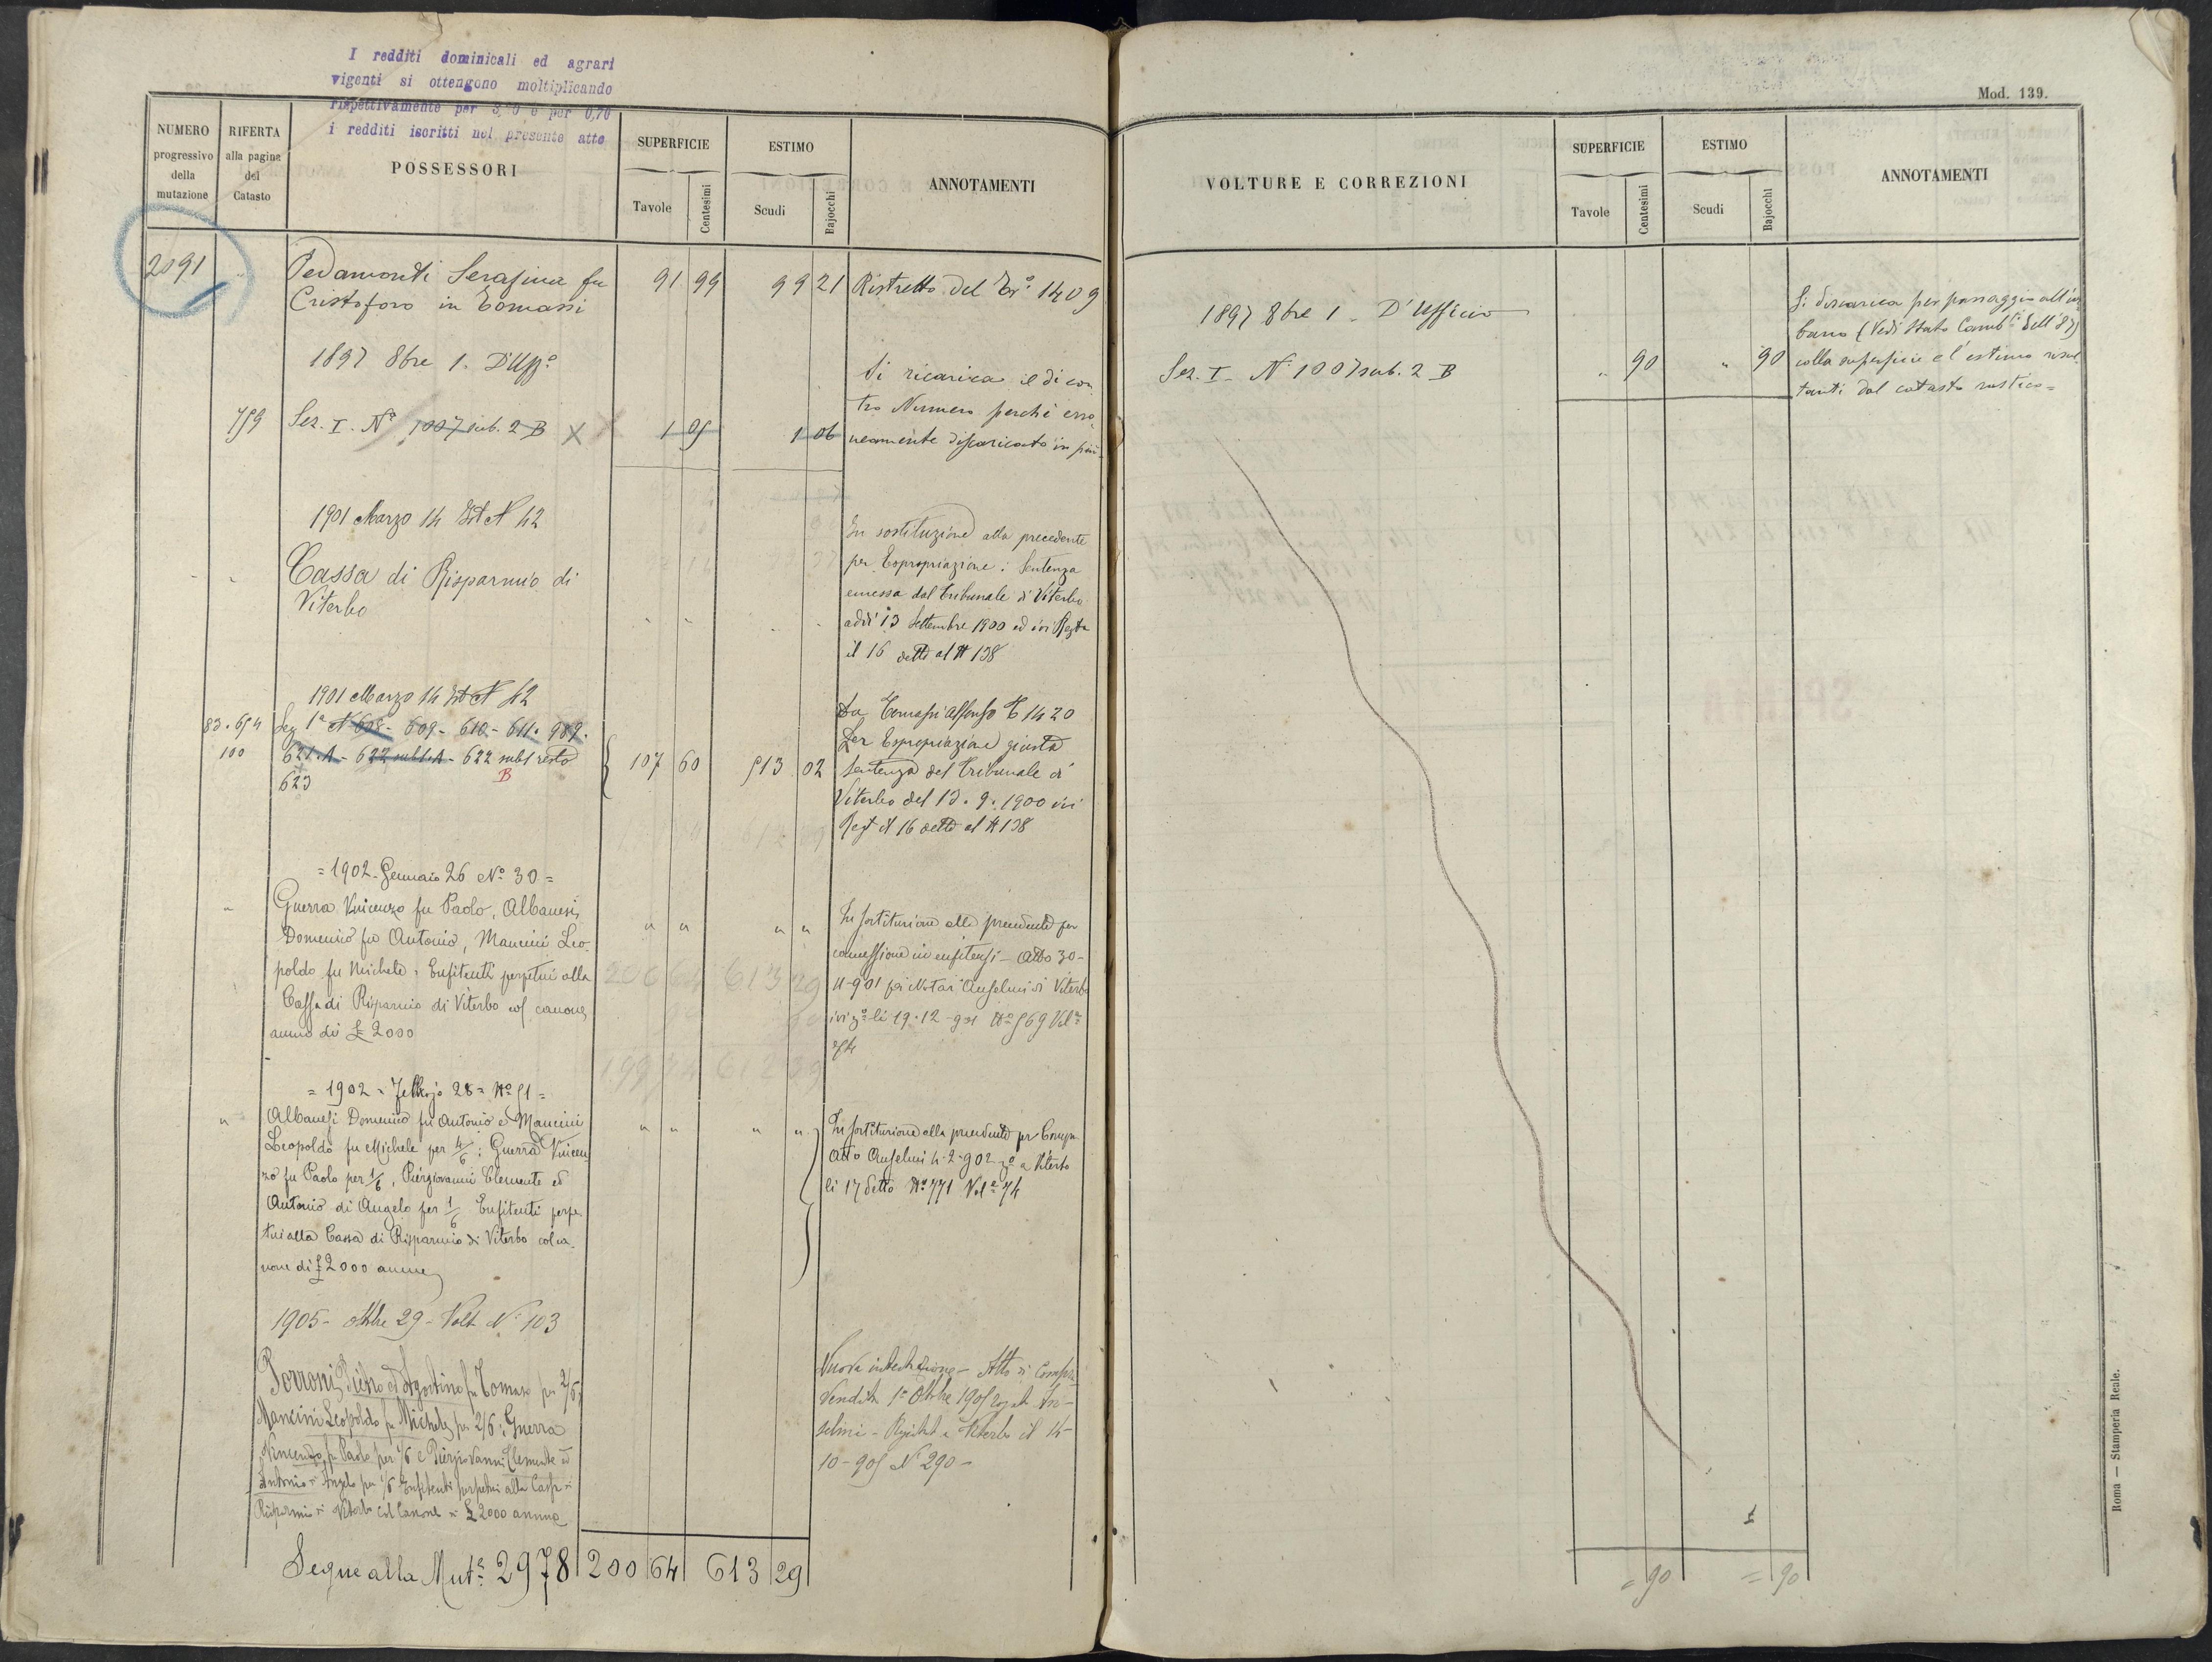 I redditi dominicali ed agrari
vigenti si ottengono moltiplicando
rispettivamente per e per 0,70
i redditi iscritti nel presente atto
NUMERO
progressivo
della
mutazione
RIFERTA
alla pagina
del
Catasto
POSSESSORI
SUPERFICIE
Tavole
Centesimi
ESTIMO
Scudi
Bajocchi
ANNOTAMENTI
2091
Pedamonti Serafina fu
Cristoforo in Tomassi
91 99
99 21
Ristretto del Tr.º 1409
1897 8bre 1. D'Uffº
759
Sez. I. Nº 1007 sub. 2 B X
1 05
1 06
Si ricarica il di con
tro Numero perchè erro
neamente discaricato in più
1901 Marzo 14 N 42
Cassa di Risparmio di
Viterbo
In sostituzione alla precedente
per Espropriazione: Sentenza
emessa dal Tribunale di Viterbo
addì 13 Settembre 1900 ed ivi Regta
il 16 detto al N 138
1901 Marzo 14 N 42
83. 654
100
Sez 1ª N 608 - 609 - 610 - 611 - 909.
621.A - 622 sub1.A - 622 sub1 resto
B
623
107 60
513 02
Da Tomassi Alfonso T 1420
Per Espropriazione giusta
Sentenza del Tribunale di
Viterbo del 13. 9. 1900 ivi
Regt il 16 detto al N 138
= 1902 - Gennaio 26 Nº 30 =
Guerra Vincenzo fu Paolo, Albanesi
Domenico fu Antonio, Mancini Leo-
poldo fu Michele, Enfiteuti perpetui alla
Cassa di Risparmio di Viterbo col canone
annuo di £ 2000
" " " "
In sostituzione alla precedente per
concessione in enfiteusi - Atto 30-
11-901 per Notar Anselmi di Viterbo
ivi li 19-12-901 Nº 569 Vol
= 1902 - Febbrajo 28 = Nº 51 =
Albanesi Domenico fu Antonio e Mancini
Leopoldo fu Michele per 4/6; Guerra Vincen
zo fu Paolo per 1/6, Piergiovanni Clemente ed
Antonio di Angelo per 1/6 Enfiteuti perpe-
tui alla Cassa di Risparmio di Viterbo col ca-
none di £ 2000 annue
" " " "
In sostituzione alla precedente per Compra
Atto Anselmi 4-2-902 a Viterbo
li 17 detto Nº 771 Vol 74
1905 - Ottbre 29 - Volt N. 103
Porroni Pietro ed Agostino fu Tomaso per 2/6;
Mancini Leopoldo fu Michele per 2/6; Guerra
Vincenzo fu Paolo per 1/6 e Piergiovanni Clemente ed
Antonio di Angelo per 1/6 Enfiteuti perpetui alla Cassa di
Risparmio di Viterbo col Canone di £ 2000 annue
Nuova intestazione - Atto di Compra
Vendita 1º Ottbre 1905 rogato An-
selmi - Registt a Viterbo il 14-
10-905 N 290 -
Segue alla Mutª 2978
200 64
613 29
Mod. 139.
VOLTURE E CORREZIONI
SUPERFICIE
Tavole
Centesimi
ESTIMO
Scudi
Bajocchi
ANNOTAMENTI
1897 8bre 1 - D'Ufficio
Sez. I - N. 1007 sub. 2 B
" 90
" 90
Si discarica per passaggio all'ur
bano (Vedi Stato Camb.ti dell'87)
colla superficie e l'estimo risul
tanti dal catasto rustico =
= 90
= 90
Roma — Stamperia Reale.